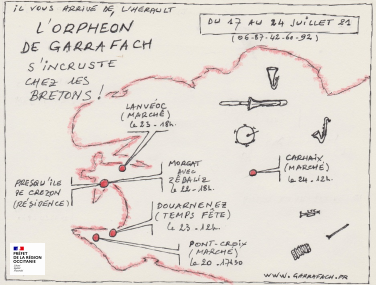 IL VOUS ARRIVE DE L'HERAULT
L'ORPHEON
DE GARRAFACH
S'INCRUSTE
CHEZ LES
BRETONS !
DU 17 AU 24 JUILLET 21
(06-87-42-60-92)
LANVÉOC
(MARCHÉ)
le 23 - 18h.
MORGAT
AVEC
ZÉBALIZ
le 22 - 18h.
PRESQU'ILE
DE CROZON
(RÉSIDENCE)
DOUARNENEZ
(TEMPS FÊTE)
le 23 - 12h.
PONT-CROIX
(MARCHÉ)
le 20 - 17h30
CARHAIX
(MARCHÉ)
le 24 - 12h.
WWW.GARRAFACH.FR
PRÉFET
DE LA RÉGION
OCCITANIE